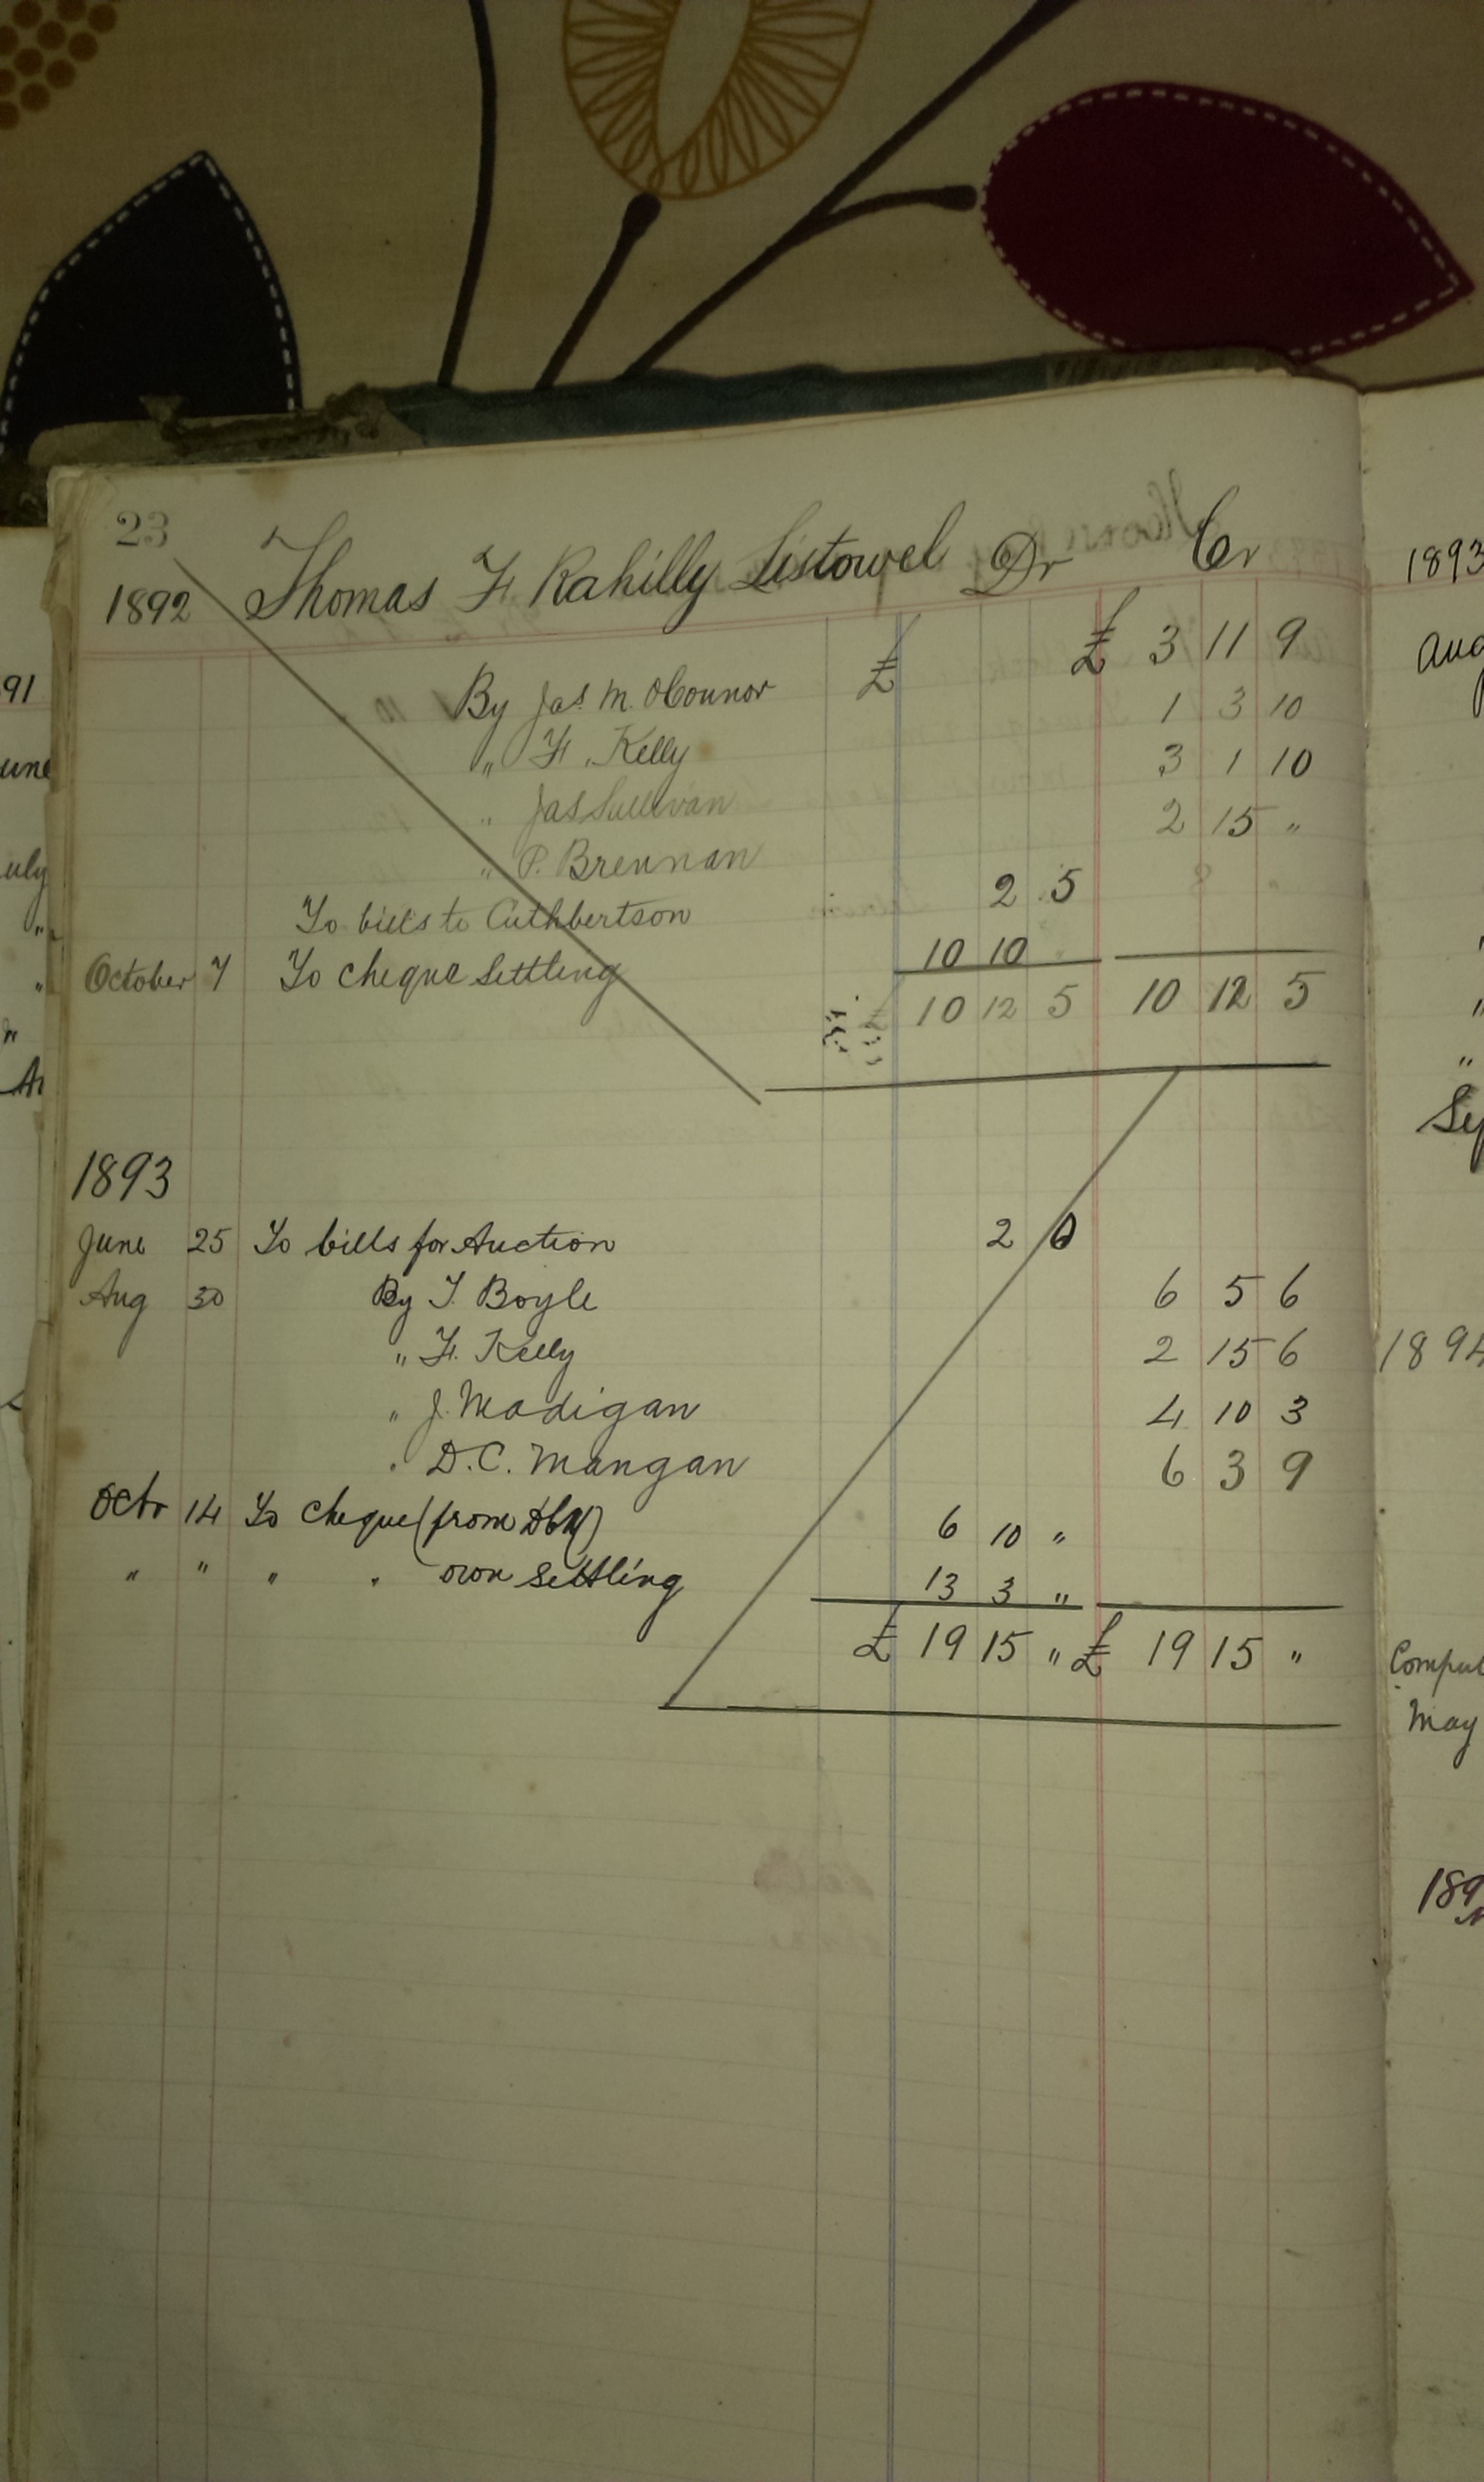 23
1892 Thomas F Rahilly Listowel Dr Cr
By Jas. M. OConnor £ £ 3 11 9
" F. Kelly 1 3 10
" Jas Sullivan 3 1 10
" P. Brennan 2 15 "
To bills to Cuthbertson 2 5
October 7 To cheque Settling 10 10
£ 10 12 5 10 12 5
1893
June 25 To bills for Auction 2 0
Aug 30 By T. Boyle 6 5 6
" F. Kelly 2 15 6
" J. Madigan 4 10 3
" D.C. Mangan 6 3 9
Octr 14 To cheque (from 6 10 "
" " " " own settling 13 3 "
£ 19 15 " £ 19 15 "
91
une
uly
"
"
1893
Aug
"
"
"
Sep
1894
May
189